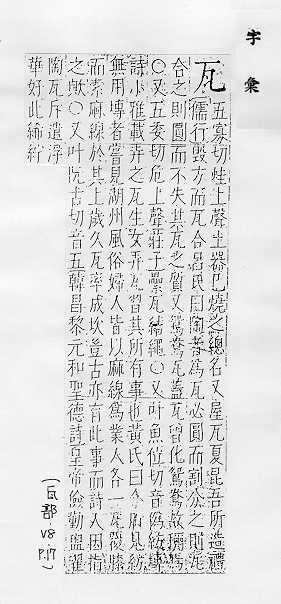 字彙
瓦 五寡切蛙上聲土器已燒之總名又屋瓦夏昆吾所造禮
儒行毀方而瓦合呂氏曰陶者為瓦必圓而割分之則瓦
合之則圓而不失其瓦之質又鴛鴦瓦蓋瓦曾化鴛鴦故
〇又五委切危上聲莊子纍瓦結繩〇又叶魚位切音偽
詩小雅載弄之瓦生女弄瓦習其所有事也黃氏曰今所見紡
無用塼者嘗見湖州風俗婦人皆以麻線為業人各一瓦覆膝
而索麻線於其上歲久瓦率成坎豈古亦有此事而詩人因指
之歟〇又叶阮古切音五韓昌黎元和聖德詩皇帝儉勤盥濯
陶瓦斥遣浮
華好此綈紵
(瓦部. V8 P.17)